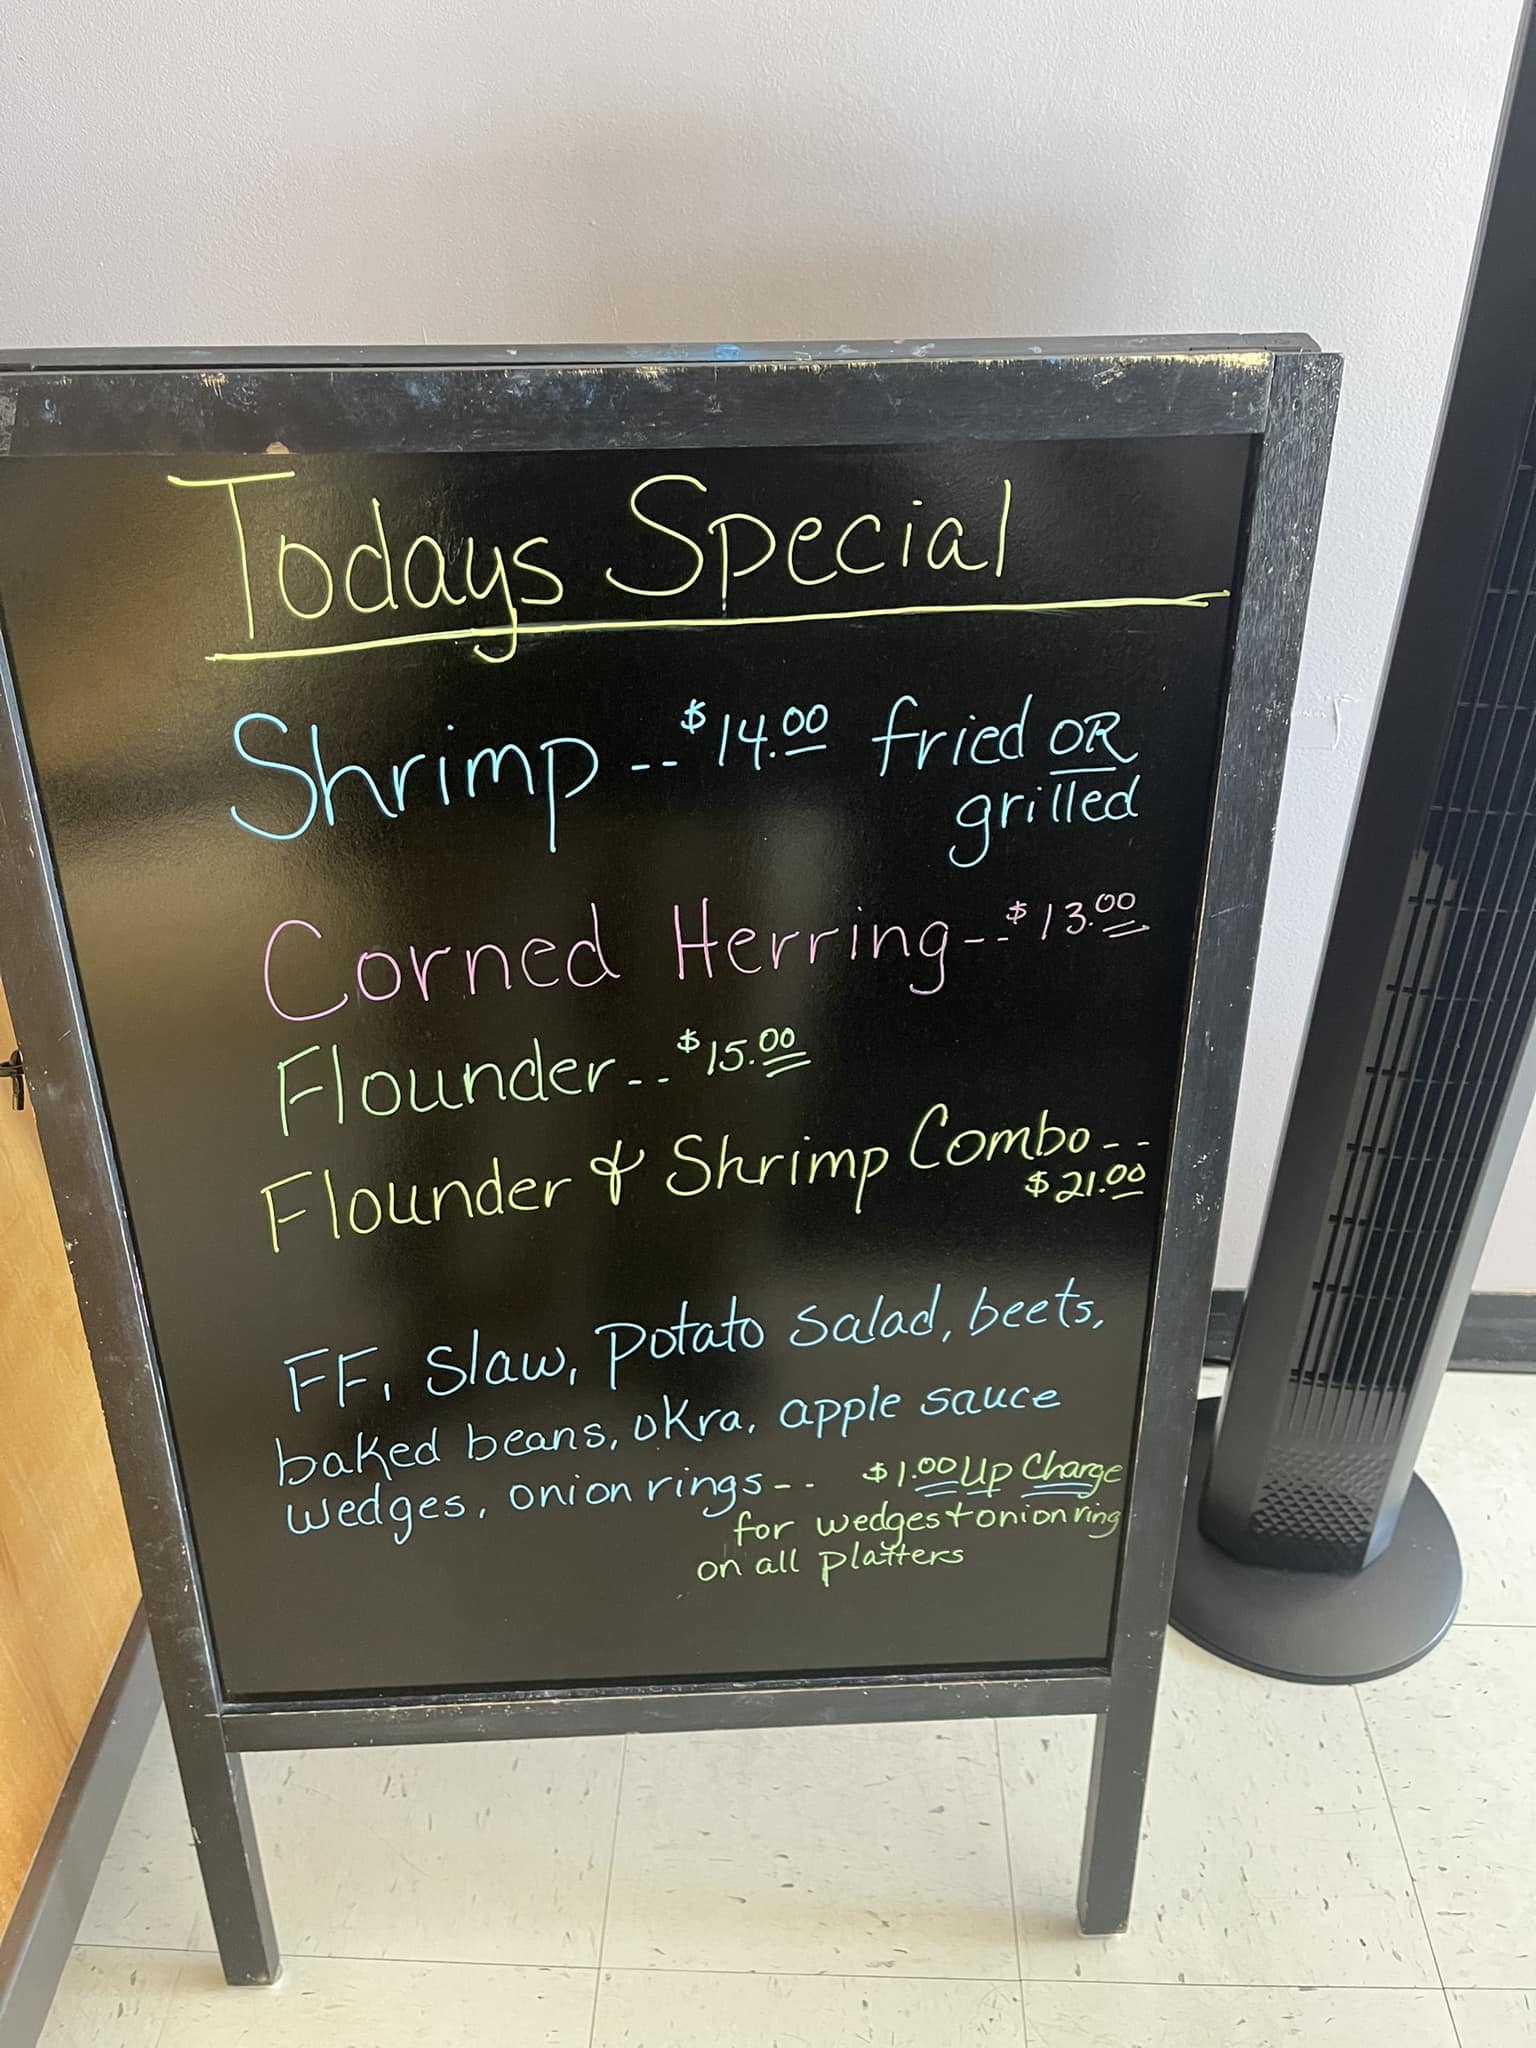 Todays Special
Shrimp -- $14.00 fried OR
grilled
Corned Herring -- $13.00
Flounder -- $15.00
Flounder & Shrimp Combo --
$21.00
FF, Slaw, Potato Salad, beets,
baked beans, okra, apple sauce
wedges, onion rings -- $1.00 Up Charge
for wedges + onion ring
on all platters